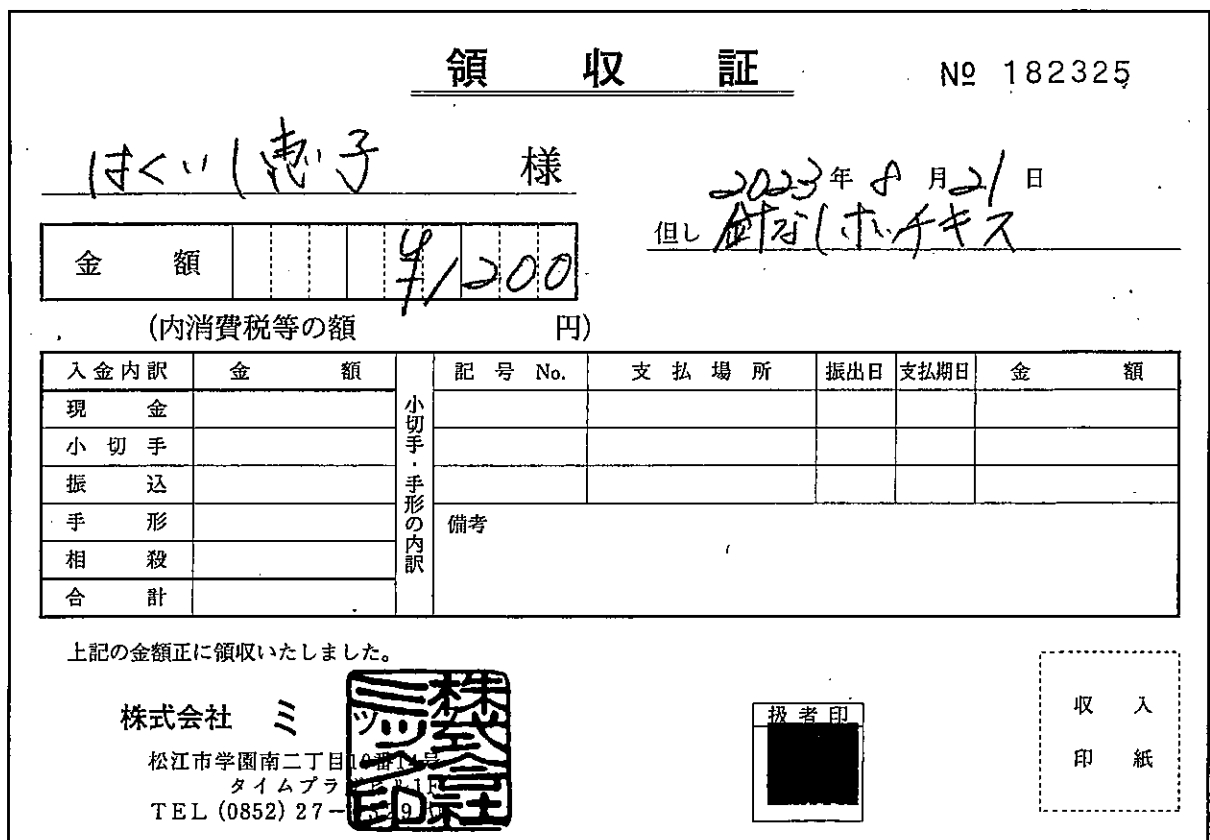 領収証
№ 182325
はくいし恵子 様
2023年8月21日
但し 針なしホッチキス
金額 ¥1200
(内消費税等の額 円)
入金内訳 金額
現金
小切手
振込
手形
相殺
合計
小切手・手形の内訳
記号No. 支払場所 振出日 支払期日 金額
備考
上記の金額正に領収いたしました。
株式会社 ミ
松江市学園南二丁目10番14号
タイムプラ
TEL (0852) 27-
扱者印
収入
印紙